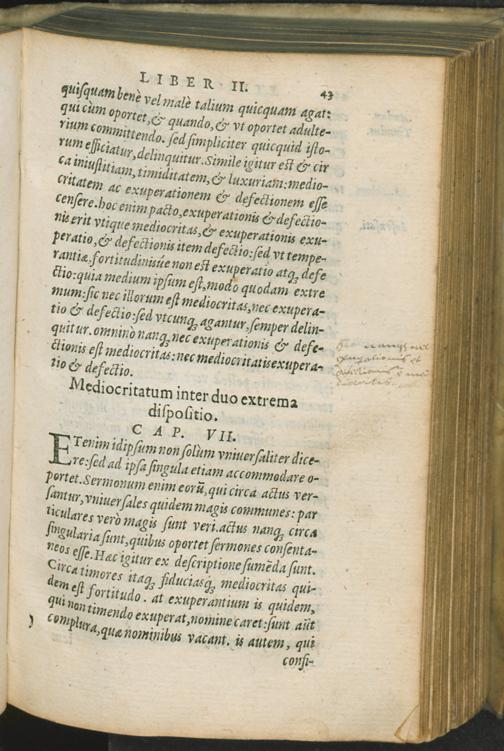 LIBER II. 43
quisquam benè vel malè talium quicquam agat:
qui cùm oportet, & quando, & vt oportet adulte-
rium committendo. sed simpliciter quicquid isto-
rum efficiatur, delinquitur. Simile igitur est & cir
ca iniustitiam, timiditatem, & luxuriam: medio-
critatem ac exuperationem & defectionem esse
censere. hoc enim pacto, exuperationis & defectio-
nis erit vtique mediocritas, & exuperationis exu-
peratio, & defectionis item defectio: sed vt tempe-
rantiæ, fortitudinisúe non est exuperatio atq; defe
ctio: quia medium ipsum est, modo quodam extre
mum: sic nec illorum est mediocritas, nec exupera-
tio & defectio: sed vtcunq; agantur, semper delin-
quitur. omninò nanq; nec exuperationis & defe-
ctionis est mediocritas: nec mediocritatis exupera-
tio & defectio.
Mediocritatum inter duo extrema
dispositio.
CAP. VII.
ETenim id ipsum non solùm vniuersaliter dice-
re: sed ad ipsa singula etiam accommodare o-
portet. Sermonum enim eorũ, qui circa actus ver-
santur, vniuersales quidem magis communes: par
ticulares verò magis sunt veri. actus nanq; circa
singularia sunt, quibus oportet sermones consenta-
neos esse. Hæc igitur ex descriptione sumẽda sunt.
Circa timores itaq; fiduciasq; mediocritas qui-
dem est fortitudo. at exuperantium is quidem,
qui non timendo exuperat, nomine caret: sunt aũt
complura, quæ nominibus vacant. is autem, qui
consi-